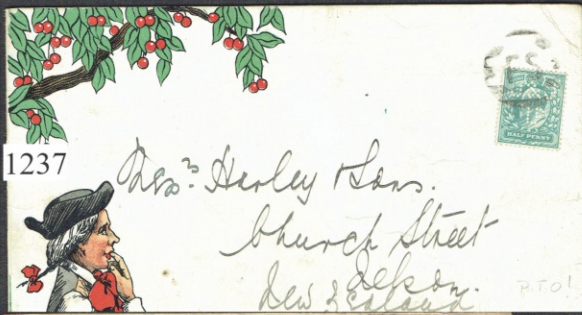 1237
HALF PENNY
Mess.rs Harley & Sons.
Church Street
Nelson.
New Zealand
P.T.O!